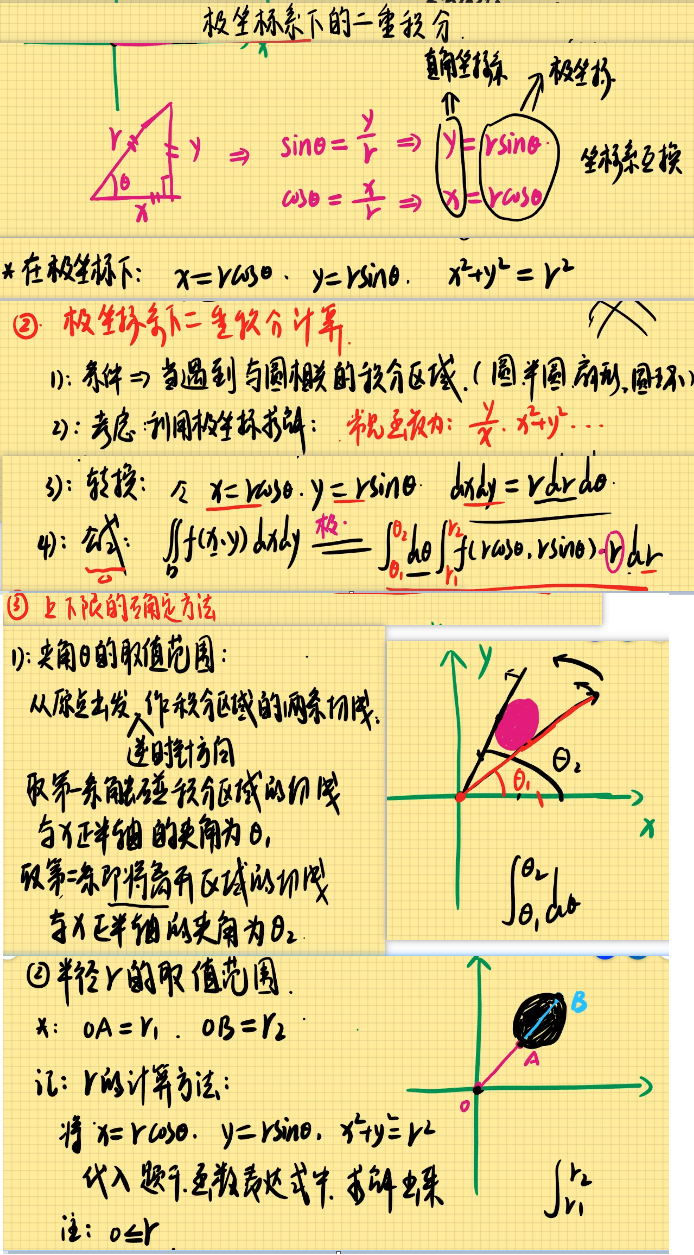 极坐标系下的二重积分
直角坐标系 极坐标
r y θ x
⇒ sinθ = y/r ⇒ y = rsinθ
cosθ = x/r ⇒ x = rcosθ
坐标系互换
* 在极坐标下: x=rcosθ. y=rsinθ. x²+y² = r²
②. 极坐标系下二重积分计算.
1): 条件 ⇒ 当遇到与圆相关的积分区域.(圆.半圆.扇形.圆环)
2): 考虑利用极坐标求解: 常见函数为: y/x. x²+y² ...
3): 转换: 令 x=rcosθ. y=rsinθ. dxdy = rdrdθ.
4): 公式: ∬_D f(x,y)dxdy 极. ∫_θ₁^θ₂ dθ ∫_r₁^r₂ f(rcosθ, rsinθ)·r dr
③ 上下限的确定方法
1): 夹角θ的取值范围:
从原点出发,作积分区域的两条切线.
逆时针方向
取第一条触碰积分区域的切线
与x正半轴的夹角为θ₁
取第二条即将离开区域的切线
与x正半轴的夹角为θ₂.
y
θ₂
θ₁
x
∫_θ₁^θ₂ dθ
② 半径r的取值范围.
*: OA=r₁. OB=r₂
记: r的计算方法:
将 x=rcosθ. y=rsinθ. x²+y²=r²
代入题干.函数表达式中.求解出来
注: 0≤r
B
A
O
∫_r₁^r₂